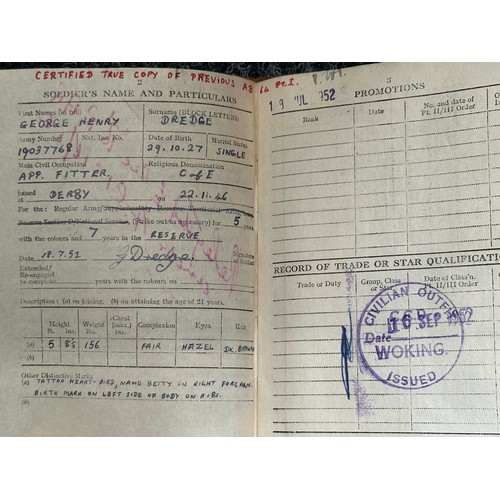 CERTIFIED TRUE COPY OF PREVIOUS AB 64 Pt.I.
2
SOLDIER'S NAME AND PARTICULARS
First Names (in full) Surname (BLOCK LETTERS)
GEORGE HENRY DREDGE
Army Number Nat. Ins. No. Date of Birth Marital Status
19037768 29.10.27 SINGLE
Main Civil Occupation Religious Denomination
APP. FITTER. C of E
Joined at DERBY on 22.11.46
For the: Regular Army/Supplementary Reserve/Territorial Army
(Strike out as necessary) for 5
with the colours and 7 years in the RESERVE
Date 18.7.52. G Dredge Signature of Soldier
Extended/
Re-engaged
to complete years with the colours on
Description: (a) on joining. (b) on attaining the age of 21 years.
Height Weight Chest Complexion Eyes Hair
ft. ins. lbs. (max.) ins.
(a) 5 8½ 156 FAIR HAZEL DK. BROWN
(b)
Other Distinctive Marks:
(a) TATTOO HEART-BIRD, NAME BETTY ON RIGHT FOREARM.
BIRTH MARK ON LEFT SIDE OF BODY ON RIBS.
(b)
3
18 JUL 1952
PROMOTIONS
Rank Date No. and date of
Pt. II/III Order
RECORD OF TRADE OR STAR QUALIFICATION
Trade or Duty Group, Class
or Star Date of Class'n.
II/III Order
CIVILIAN OUTFIT
16 SEP 1952
Date
WOKING.
ISSUED